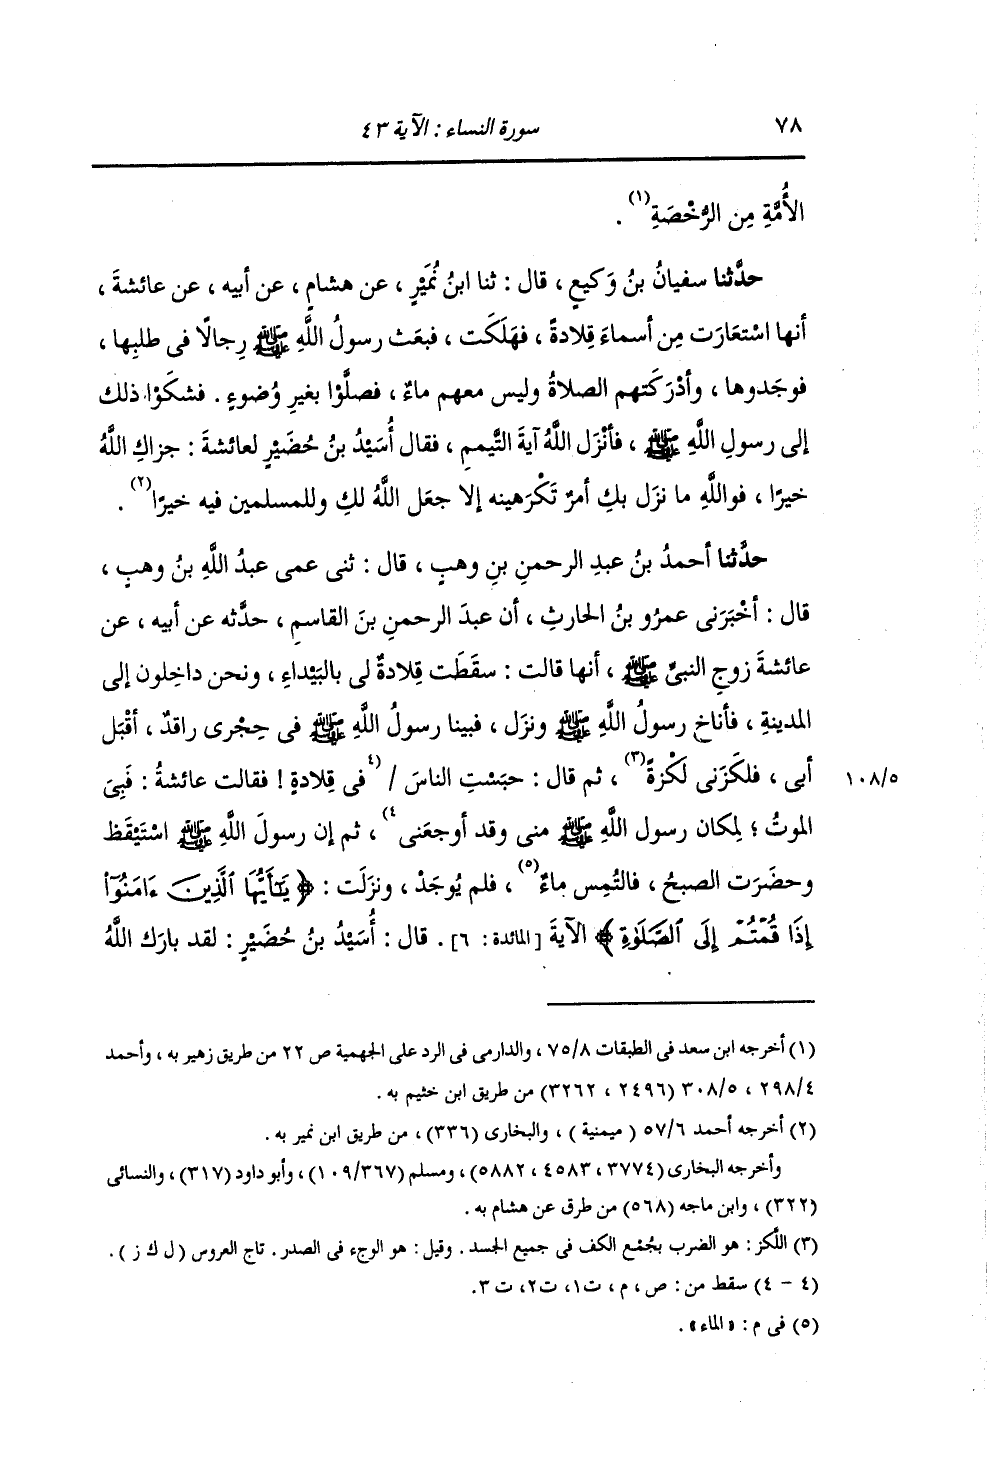 ٧٨ سورة النساء : الآية ٤٣
الأُمَّةِ مِن الرُّخْصَةِ(١) .
حدَّثنا سفيانُ بنُ وَكيعٍ ، قال : ثنا ابنُ نُمَيْرٍ ، عن هشامٍ ، عن أبيه ، عن عائشةَ ،
أنها اسْتعَارَت مِن أسماءَ قِلادةً ، فهَلَكَت ، فبعَث رسولُ اللَّهِ ﷺ رِجالًا فى طلبِها ،
فوجَدوها ، وأدْرَكَتهم الصلاةُ وليس معهم ماءٌ ، فصلَّوْا بغيرِ وُضوءٍ . فشكَوْا ذلك
إلى رسولِ اللَّهِ ﷺ ، فأنْزَل اللَّهُ آيةَ التَّيممِ ، فقال أُسَيْدُ بنُ حُضَيْرٍ لعائشةَ : جزاكِ اللَّهُ
خيرًا ، فواللَّهِ ما نزَل بكِ أمرٌ تَكْرَهينه إلا جعَل اللَّهُ لكِ وللمسلمين فيه خيرًا(٢) .
حدَّثنا أحمدُ بنُ عبدِ الرحمنِ بنِ وهبٍ ، قال : ثنى عمى عبدُ اللَّهِ بنُ وهبٍ ،
قال : أخْبَرَنى عمرُو بنُ الحارثِ ، أن عبدَ الرحمنِ بنَ القاسمِ ، حدَّثه عن أبيه ، عن
عائشةَ زوجِ النبىِّ ﷺ ، أنها قالت : سقَطَت قِلادةٌ لى بالبَيْداءِ ، ونحن داخِلون إلى
المدينةِ ، فأناخ رسولُ اللَّهِ ﷺ ونزَل ، فبينا رسولُ اللَّهِ ﷺ فى حِجْرى راقدٌ ، أقْبَل
أبى ، فلكَزَنى لَكْزةً(٣) ، ثم قال : حبَسْتِ الناسَ / (٤فى قِلادةٍ ! فقالت عائشةُ : فَبِىَ ١٠٨/٥
الموتُ ؛ لمِكان رسول اللَّهِ ﷺ منى وقد أوجعَنى٤) ، ثم إن رسولَ اللَّهِ ﷺ اسْتَيْقَظ
وحضَرَت الصبحُ ، فالتُمِس ماءٌ(٥) ، فلم يُوجَدْ ، ونزَلَت : ﴿ يَٰٓأَيُّهَا ٱلَّذِينَ ءَامَنُوٓا۟
إِذَا قُمْتُمْ إِلَى ٱلصَّلَوٰةِ ﴾ الآيةَ [المائدة : ٦] . قال : أُسَيْدُ بنُ حُضَيْرٍ : لقد بارَك اللَّهُ
(١) أخرجه ابن سعد فى الطبقات ٧٥/٨ ، والدارمى فى الرد على الجهمية ص ٢٢ من طريق زهير به ، وأحمد
٢٩٨/٤ ، ٣٠٨/٥ (٢٤٩٦ ، ٣٢٦٢) من طريق ابن خثيم به .
(٢) أخرجه أحمد ٥٧/٦ ( ميمنية ) ، والبخارى (٣٣٦) ، من طريق ابن نمير به .
وأخرجه البخارى (٣٧٧٤ ، ٤٥٨٣ ، ٥٨٨٢) ، ومسلم (١٠٩/٣٦٧) ، وأبو داود (٣١٧) ، والنسائى
(٣٢٢) ، وابن ماجه (٥٦٨) من طرق عن هشام به .
(٣) اللَّكز : هو الضرب بجُمْع الكف فى جميع الجسد . وقيل : هو الوجء فى الصدر . تاج العروس ( ل ك ز ) .
(٤ - ٤) سقط من : ص ، م ، ت١، ت٢، ت ٣.
(٥) فى م : « الماء » .